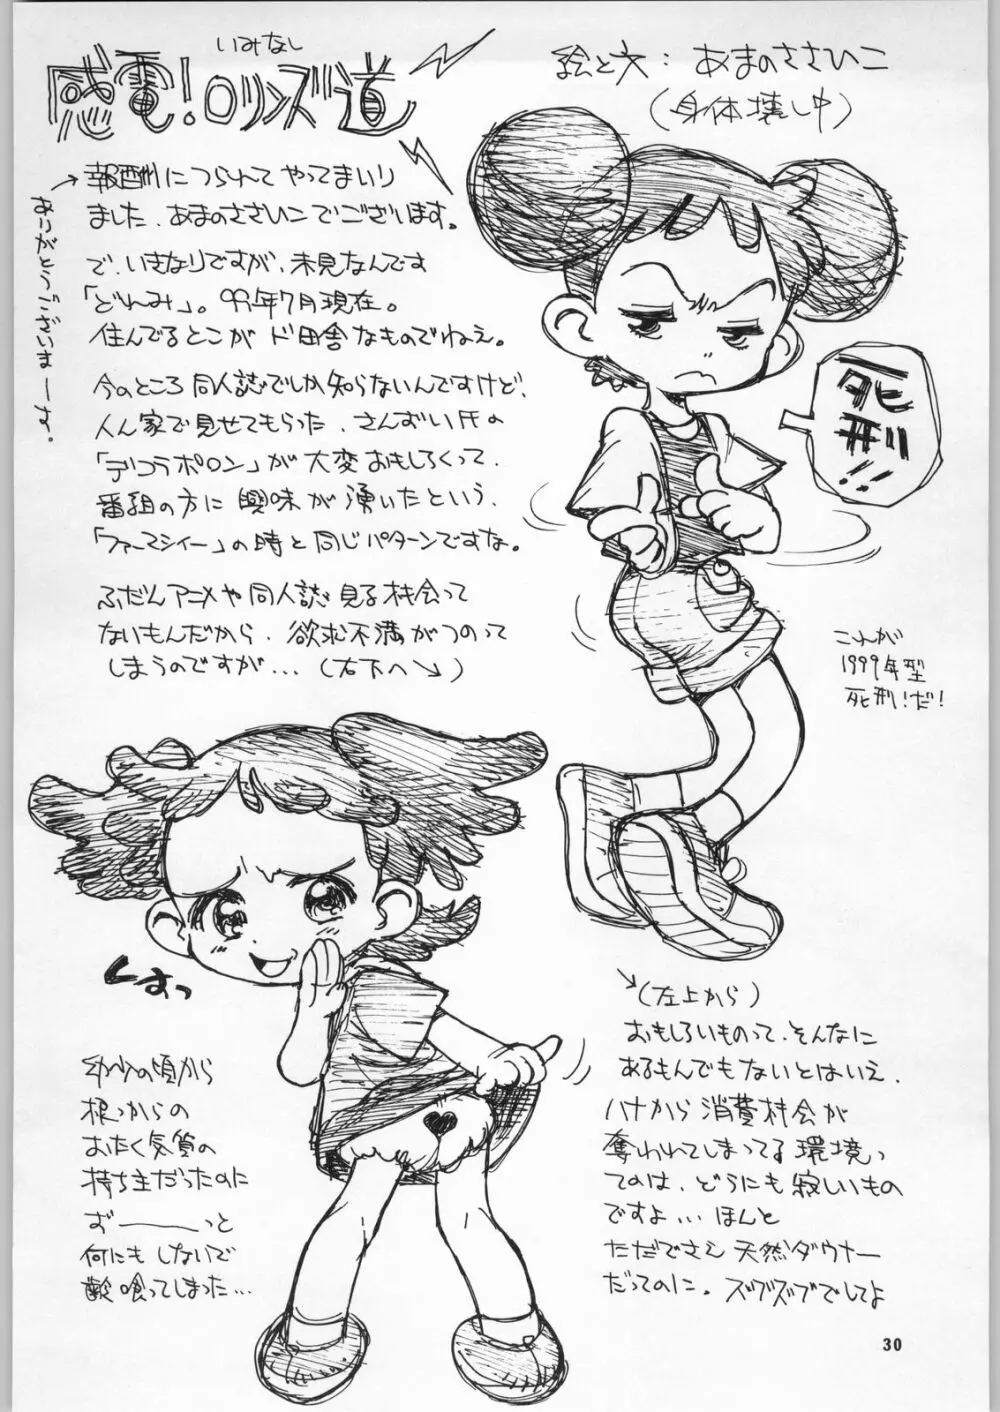 いみなし
感電!ロリンズ道
絵と文:あまのささひこ
(身体壊し中)
報酬につられてやってまいり
ました、あまのささひこでございます。
ありがとうございまーす。
で、いきなりですが、未見なんです
「どれみ」。99年7月現在。
住んでるとこがド田舎なものでねぇ。
今のところ同人誌でしか知らないんですけど、
人ん家で見せてもらった、さんずい氏の
「デコラポロン」が大変おもしろくって、
番組の方に興味が湧いたという、
「ファーマシィー」の時と同じパターンですな。
ふだんアニメや同人誌見る機会って
ないもんだから、欲求不満がつのって
しまうのですが…(右下へ↘)
死刑!!
これが
1999年型
死刑!だ!
くすっ
幼少の頃から
根っからの
おたく気質の
持ち主だったのに
ずーーっと
何にもしないで
齢喰ってしまった…
↘(左上から)
おもしろいものって、そんなに
あるもんでもないとはいえ、
ハナから消費機会が
奪われてしまってる環境っ
てのは、どうにも寂しいもの
ですよ…ほんと
ただでさえ天然ダウナー
だってのに。ズブズブでしてよ
30